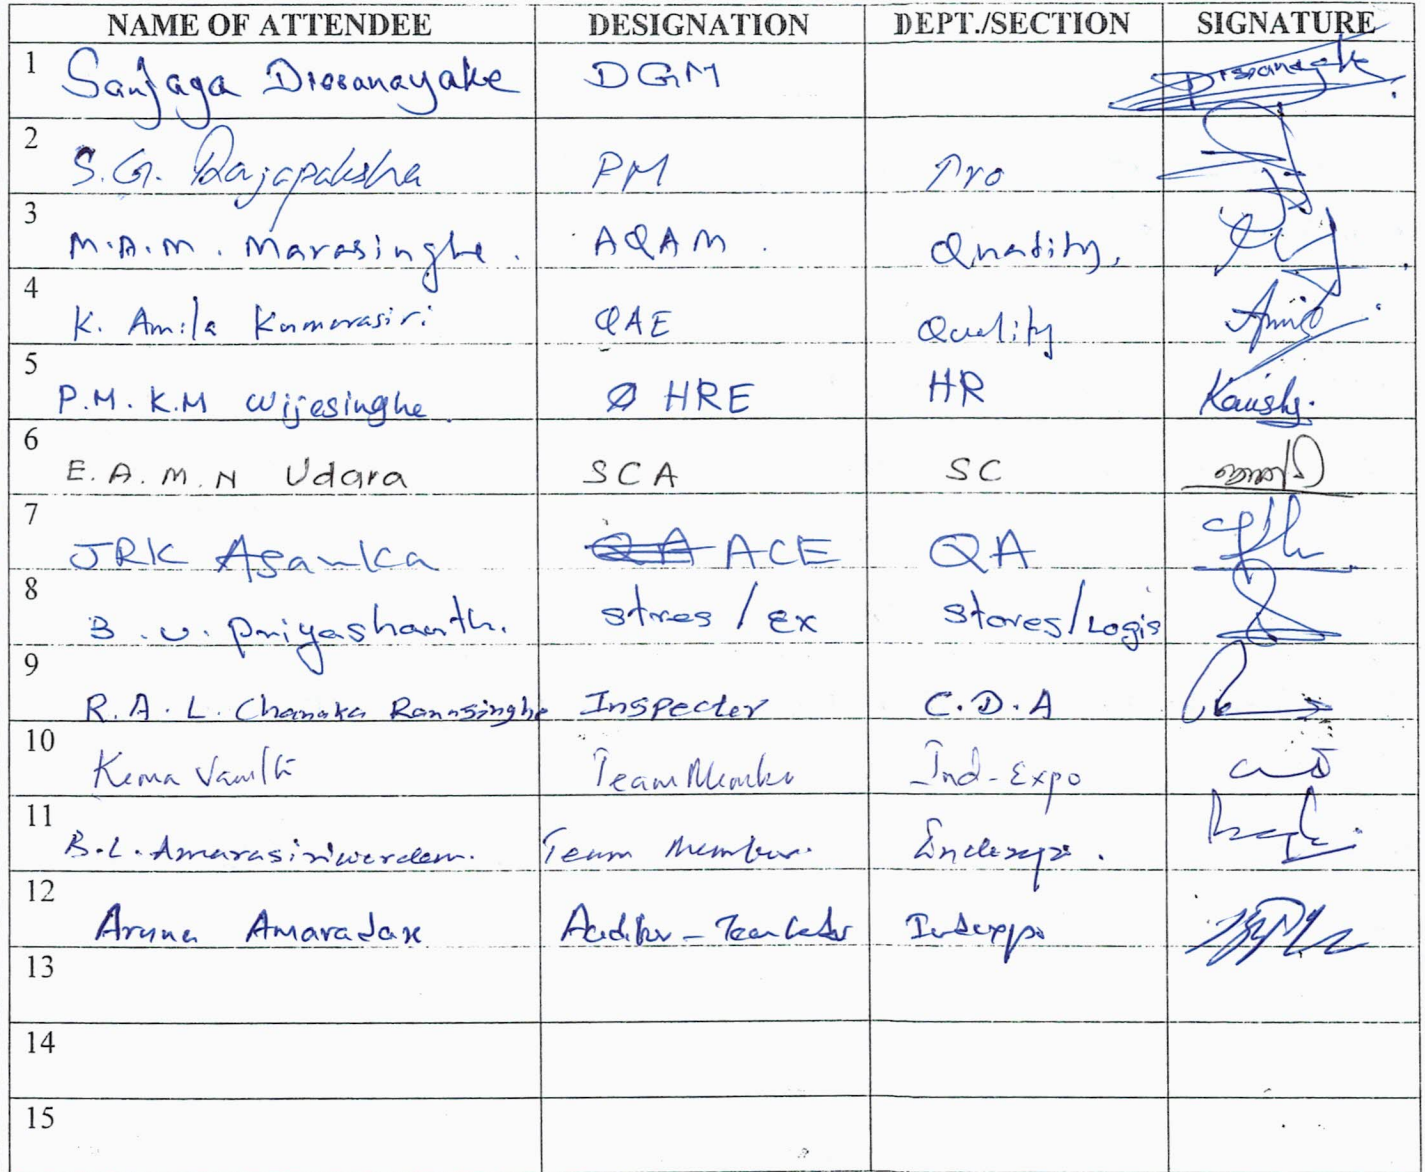 NAME OF ATTENDEE DESIGNATION DEPT./SECTION SIGNATURE
1 Sanjaya Dissanayake DGM Dissanayake
2 S.G. Rajapaksha PM Pro
3 M.A.M. Marasinghe. AQAM. Quality,
4 K. Amila Kumarasiri QAE Quality
5 P.M.K.M Wijesinghe. HRE HR
6 E.A.M.N Udara SCA SC
7 JRK Asanka ACE QA
8 B.U. Priyashanth. stores/Ex stores/Logis
9 R.A.L. Chanaka Ranasinghe Inspecter C.D.A
10 Kema Team Member Ind-Expo
11 Team Member. Indexpo.
12 Aruna Amaradasa Auditor - Team Leader Indexpo
13
14
15